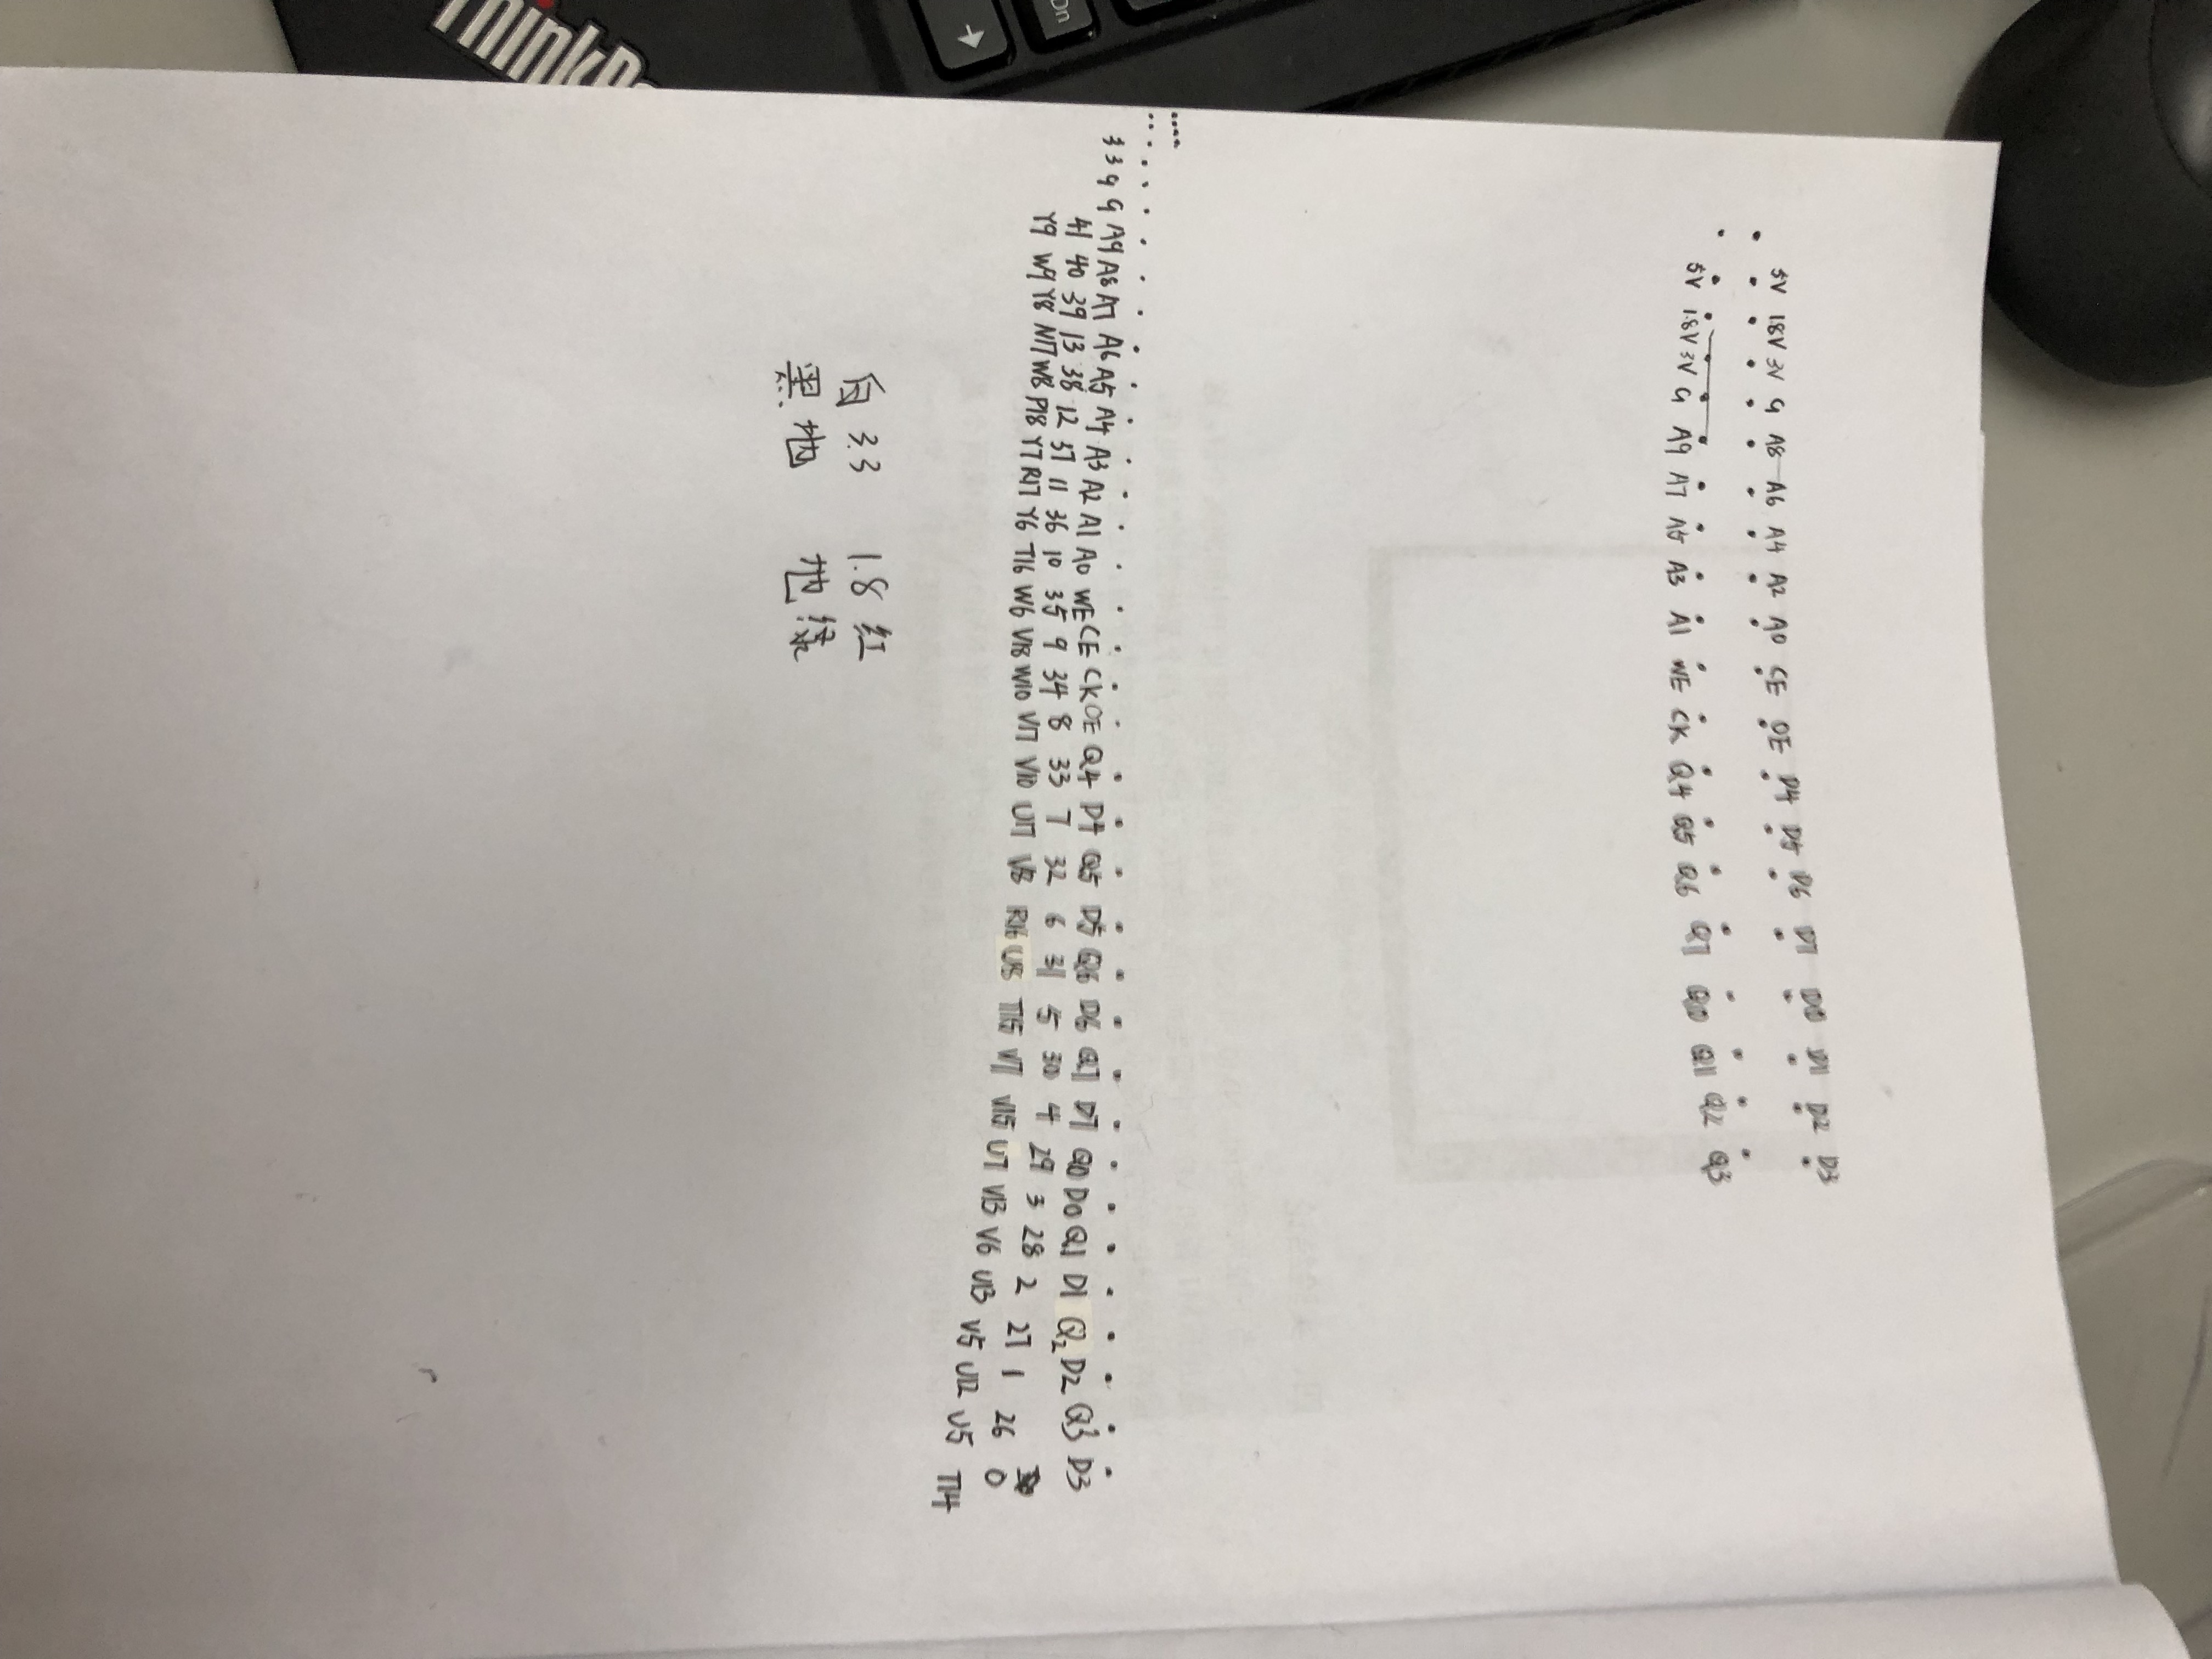 ThinkPa
Dn
5V 1.8V 3V G A8 A6 A4 A2 A0 CE OE D4 D5 D6 D7 D0 D1 D2 D3
5V 1.8V 3V G A9 A7 A5 A3 A1 WE CK Q4 Q5 Q6 Q7 Q0 Q1 Q2 Q3
3 3 G G A9 A8 A7 A6 A5 A4 A3 A2 A1 A0 WE CE CK OE Q4 D4 Q5 D5 Q6 D6 Q7 D7 Q0 D0 Q1 D1 Q2 D2 Q3 D3
41 40 39 13 38 12 37 11 36 10 35 9 34 8 33 7 32 6 31 5 30 4 29 3 28 2 27 1 26 0
Y9 W9 Y8 N17 W8 P18 Y7 R17 Y6 T16 W6 V18 W10 V17 V10 U17 V8 R16 U8 T15 V7 V15 U7 V13 V6 U13 V5 U12 U5 T14
白 3.3 1.8 红
黑 地 地 绿